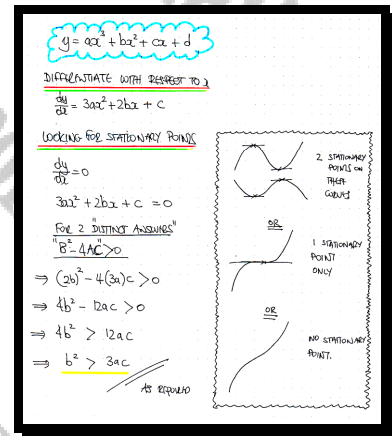 y = ax³ + bx² + cx + d
DIFFERENTIATE WITH RESPECT TO x
dy/dx = 3ax² + 2bx + c
LOOKING FOR STATIONARY POINTS
dy/dx = 0
3ax² + 2bx + c = 0
FOR 2 "DISTINCT ANSWERS"
"B² - 4AC" > 0
⇒ (2b)² - 4(3a)c > 0
⇒ 4b² - 12ac > 0
⇒ 4b² > 12ac
⇒ b² > 3ac
AS REQUIRED
2 STATIONARY
POINTS ON
THEIR
CURVES
OR
1 STATIONARY
POINT
ONLY
OR
NO STATIONARY
POINT.